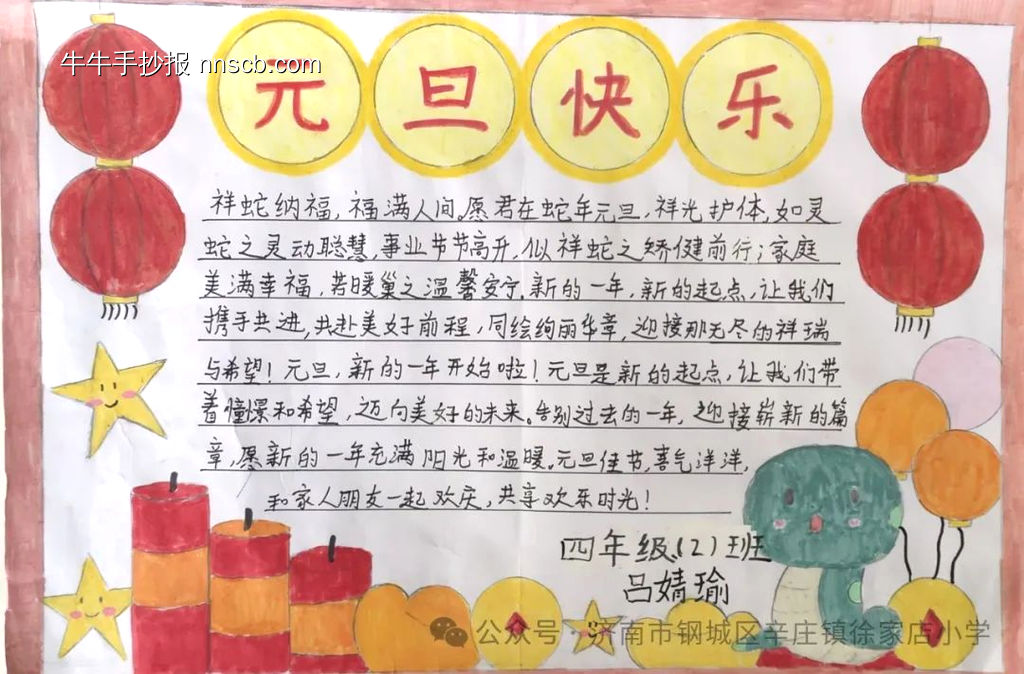 牛牛手抄报 nnscb.com
元旦快乐
祥蛇纳福，福满人间。愿君在蛇年元旦，祥光护体，如灵
蛇之灵动聪慧，事业节节高升，似祥蛇之矫健前行；家庭
美满幸福，若暖巢之温馨安宁。新的一年，新的起点，让我们
携手共进，共赴美好前程，同绘绚丽华章，迎接那无尽的祥瑞
与希望！元旦，新的一年开始啦！元旦是新的起点，让我们带
着憧憬和希望，迈向美好的未来。告别过去的一年，迎接崭新的篇
章，愿新的一年充满阳光和温暖。元旦佳节，喜气洋洋，
和家人朋友一起欢庆，共享欢乐时光！
四年级（2）班
吕婧瑜
公众号·济南市钢城区辛庄镇徐家店小学